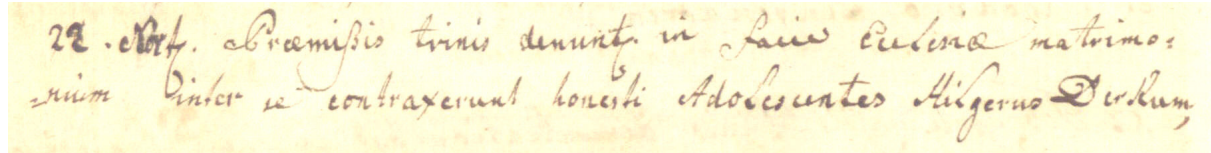 22. Præmissis trinis denunt. in facie Ecclesiæ matrimo=
=nium inter se contraxerunt honesti Adolescentes Hilgerus Derkum,